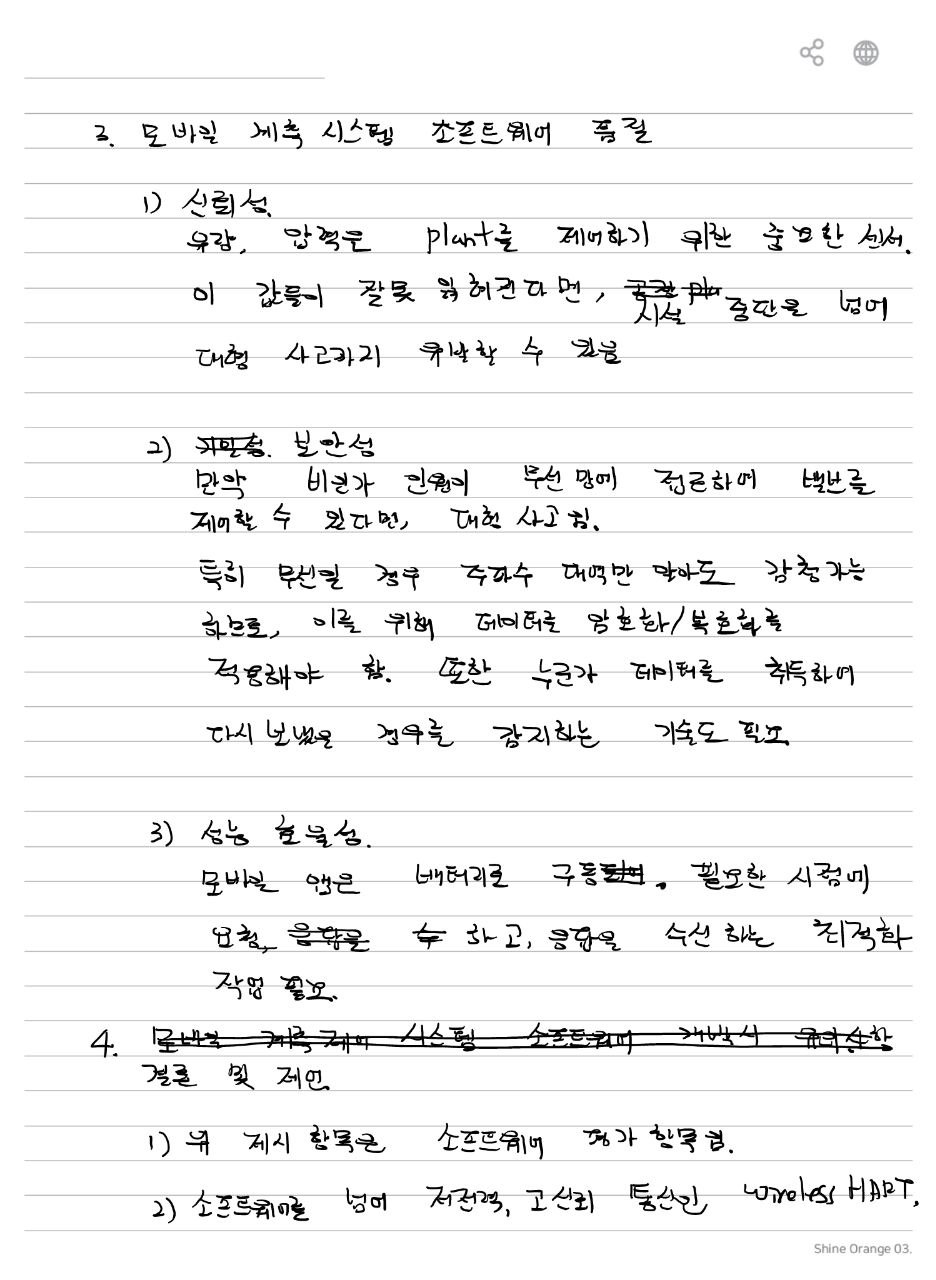 3. 모바일 계측 시스템 소프트웨어 품질
1) 신뢰성.
유량, 압력은 plant를 제어하기 위한 중요한 센서.
이 값들이 잘못 읽혀진다면,
시설 중단을 넘어
대형 사고까지 유발할 수 있음
2) 기밀성. 보안성
만약 비인가 인원이 무선 망에 접근하여 밸브를
제어할 수 있다면, 대형 사고임.
특히 무선일 경우 주파수 대역만 맞아도 감청가능
하므로, 이를 위해 데이터를 암호화/복호화를
적용해야 함. 또한 누군가 데이터를 취득하여
다시 보냈을 경우를 감지하는 기술도 필요
3) 성능 효율성.
모바일 앱은 배터리로 구동되며. 필요한 시점에
요청, 응답을 수 하고, 응답을 수신 하는 최적화
작업 필요.
4. 모바일 계측 제어 시스템 소프트웨어 개발시 유의사항
결론 및 제언
1) 위 제시 항목은 소프트웨어 평가 항목임.
2) 소프트웨어를 넘어 저전력, 고신뢰 통신인 wireless HART,
Shine Orange 03.